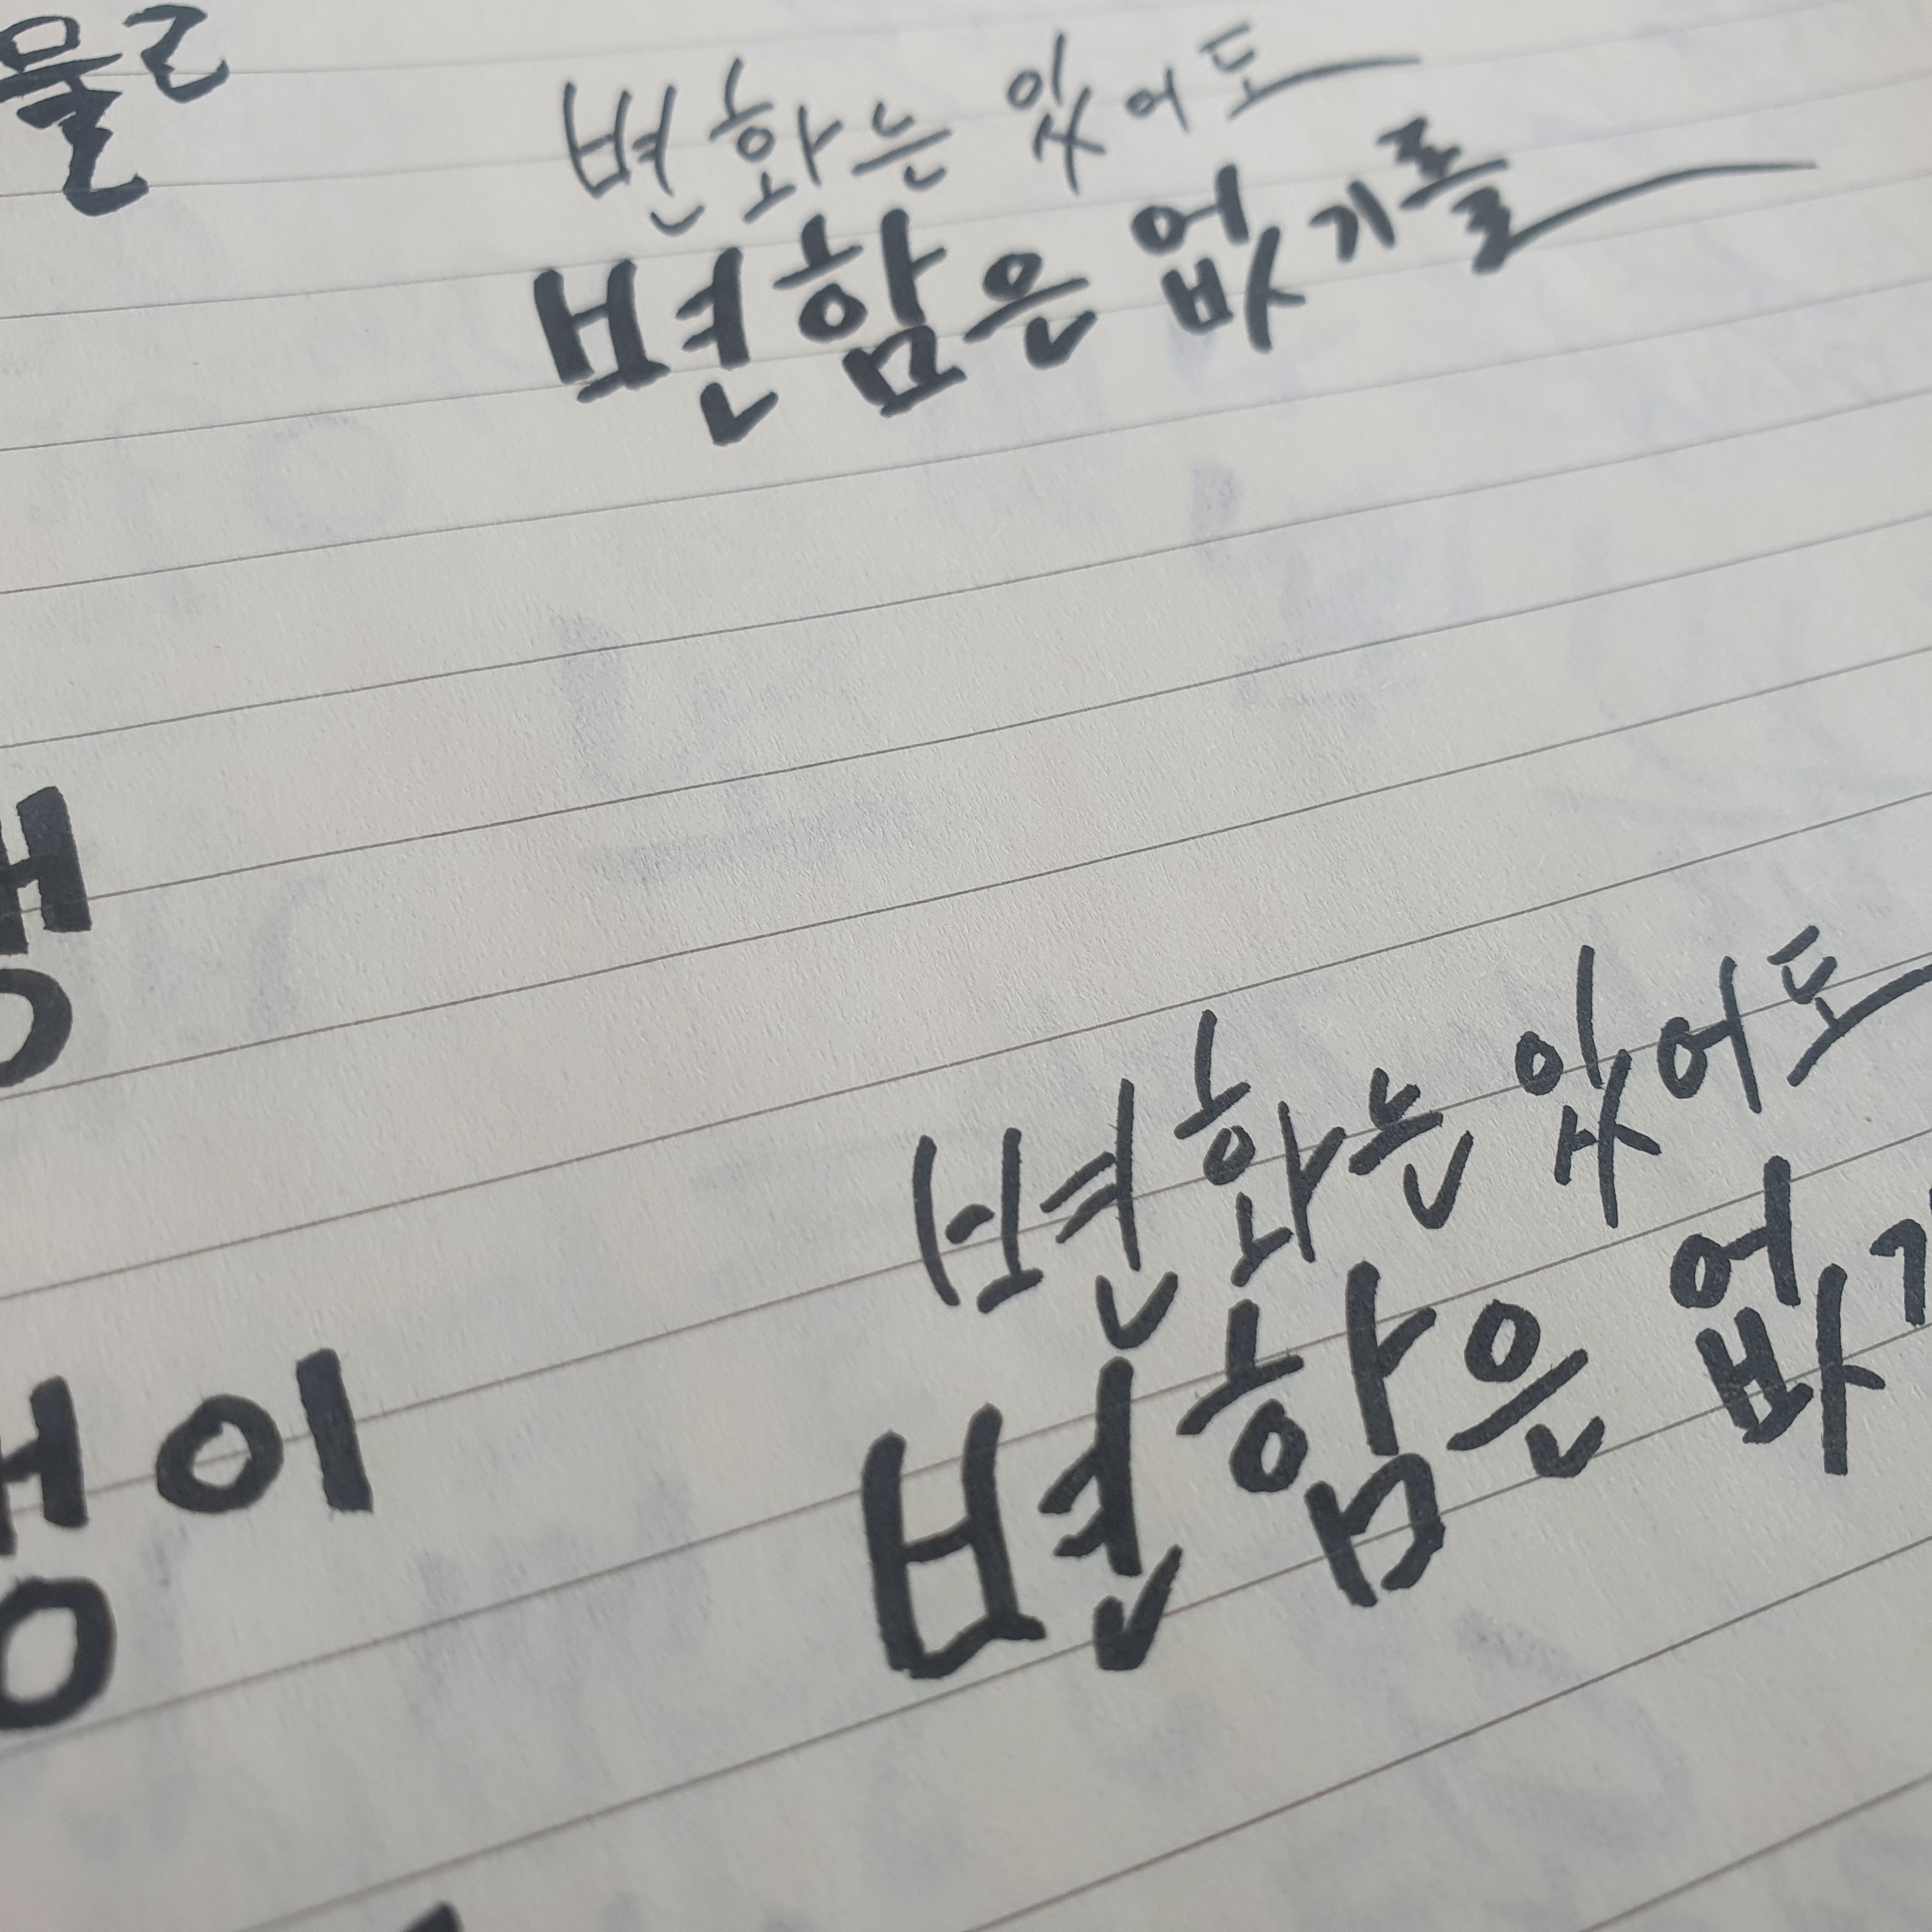 변화는 있어도
변함은 없기를
변화는 있어도
변함은 없기